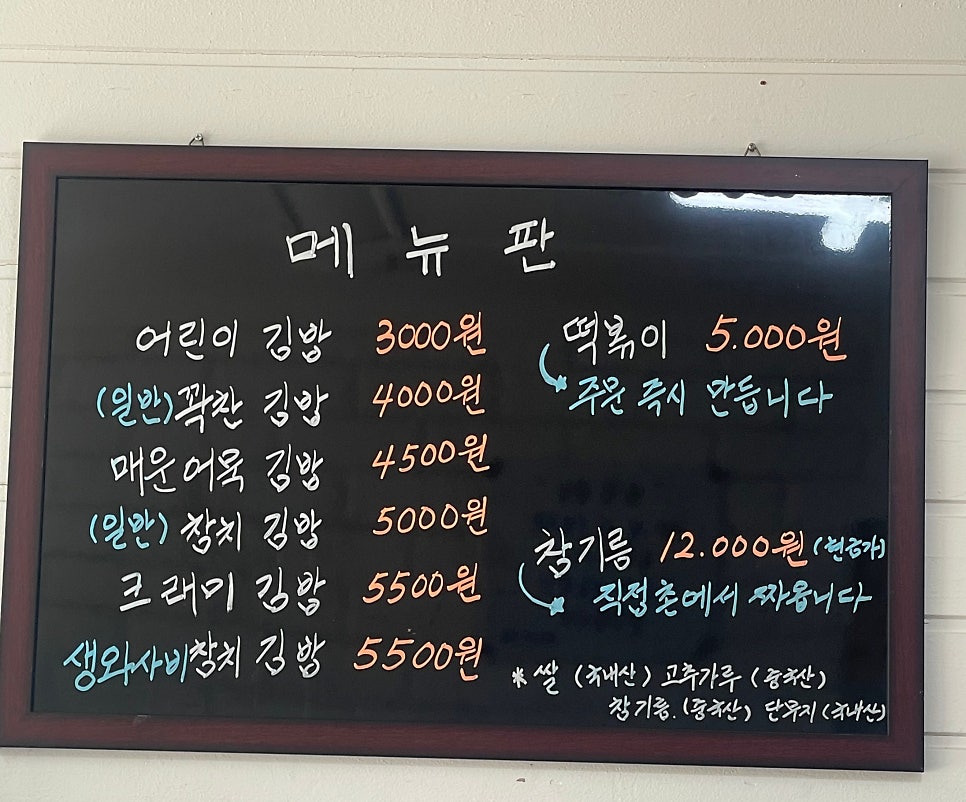 메뉴판
어린이 김밥 3000원
(일반)꽉찬 김밥 4000원
매운어묵 김밥 4500원
(일반) 참치 김밥 5000원
크래미 김밥 5500원
생와사비참치 김밥 5500원
떡볶이 5.000원
주문 즉시 만듭니다
참기름 12.000원 (현금가)
직접촌에서 짜옵니다
* 쌀 (국내산) 고추가루 (중국산)
참기름. (중국산) 단무지 (국내산)